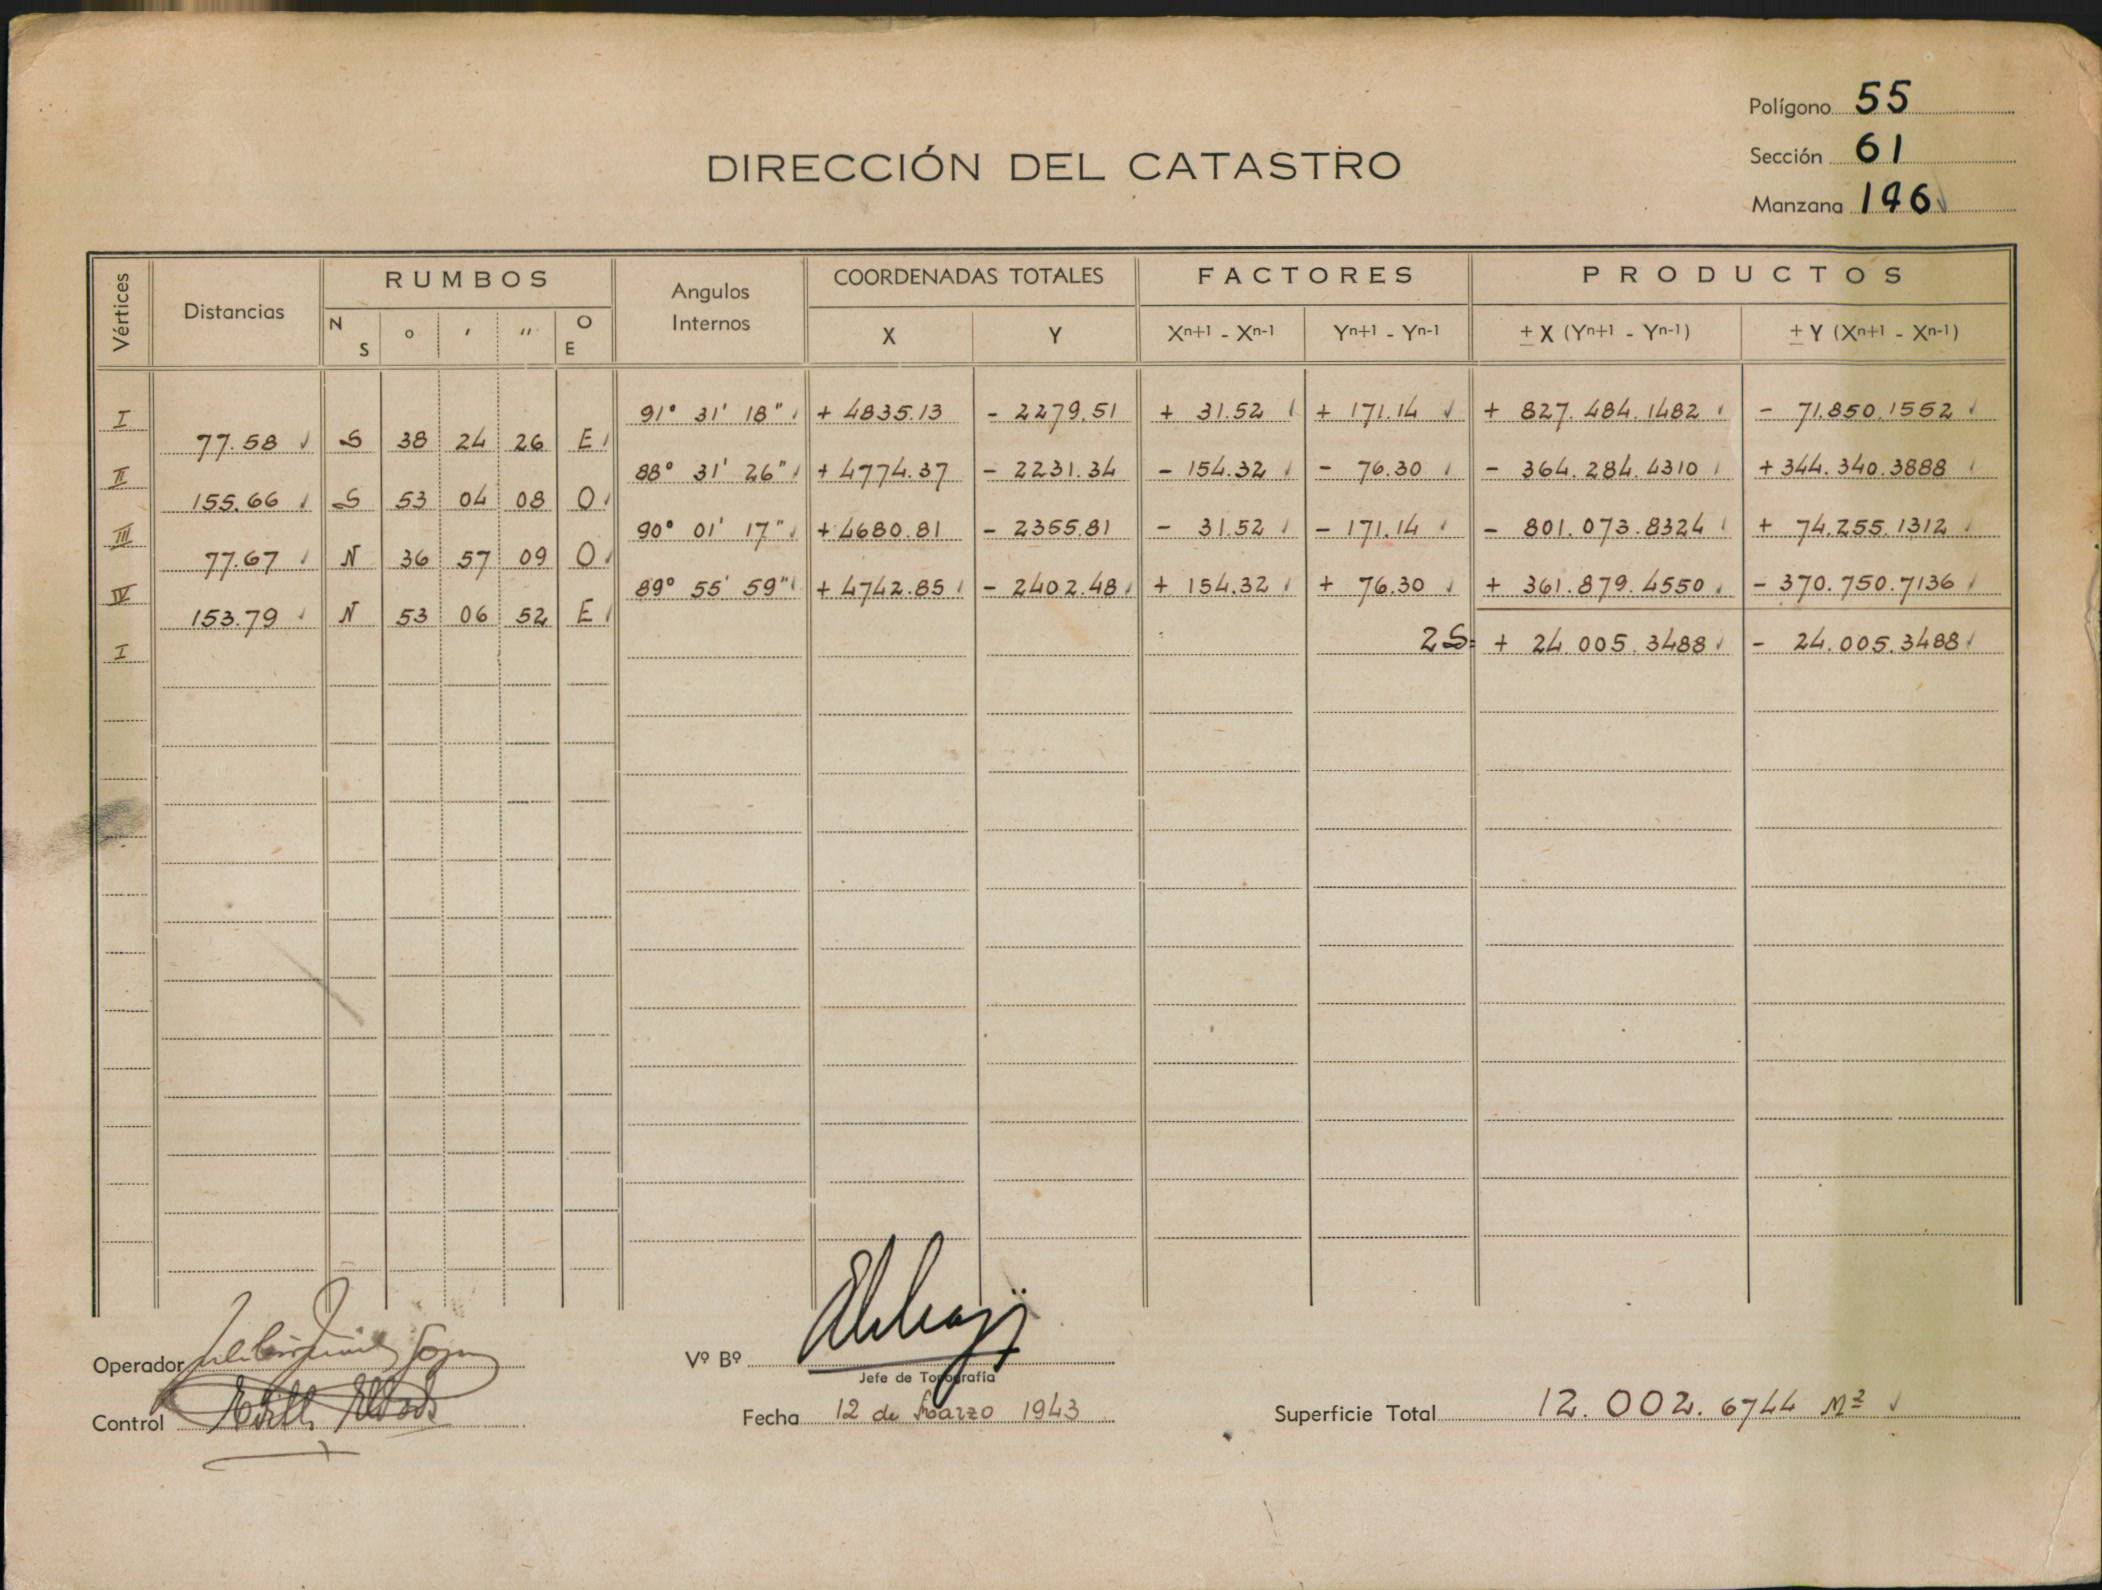 Polígono 55
Sección 61
Manzana 196
DIRECCIÓN DEL CATASTRO
Vértices Distancias RUMBOS Angulos Internos COORDENADAS TOTALES FACTORES PRODUCTOS
N S ° ' '' O E X Y Xn+1 - Xn-1 Yn+1 - Yn-1 ± X (Yn+1 - Yn-1) ± Y (Xn+1 - Xn-1)
I 91° 31' 18" + 4835.13 - 2279.51 + 31.52 + 171.14 + 827.484.1482 - 71.850.1552
77.58 S 38 24 26 E
II 88° 31' 26" + 4774.37 - 2231.34 - 154.32 - 76.30 - 364.284.4310 + 344.340.3888
155.66 S 53 04 08 O
III 90° 01' 17" + 4680.81 - 2355.81 - 31.52 - 171.14 - 801.073.8324 + 74.255.1312
77.67 N 36 57 09 O
IV 89° 55' 59" + 4742.85 - 2402.48 + 154.32 + 76.30 + 361.879.4550 - 370.750.7136
153.79 N 53 06 52 E
I 2S= + 24.005.3488 - 24.005.3488
Operador
Vº Bº
Jefe de Topografía
Control
Fecha 12 de Marzo 1943
Superficie Total 12.002.6744 M²